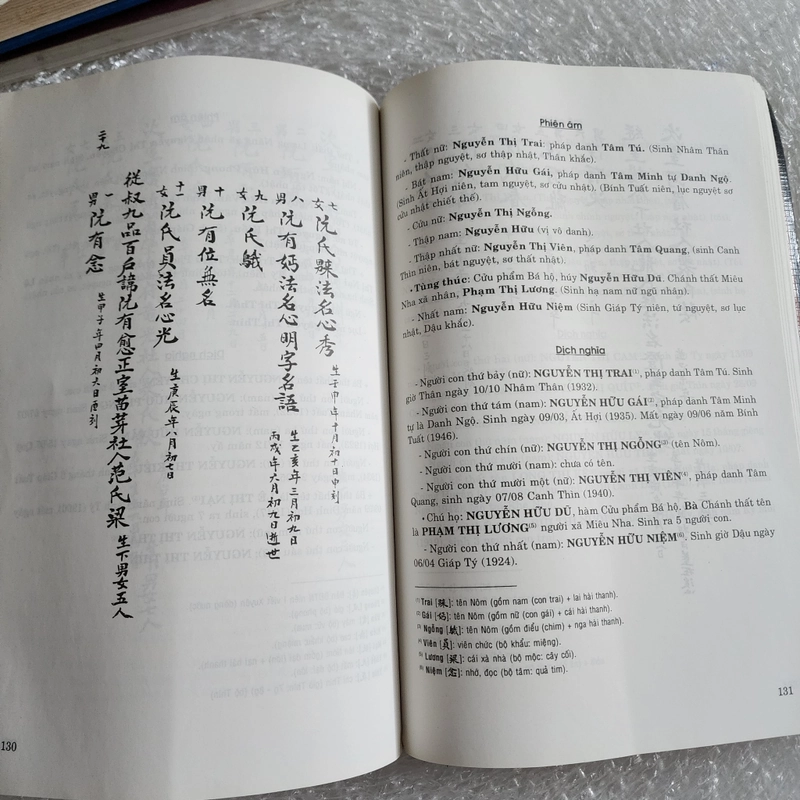 二十九
七女阮氏䊷法名心秀 生壬申年十月初十日申刻
八男阮有妫法名心明字名語 生乙亥年三月初九日 丙戌年六月初九日逝世
九女阮氏
十男阮有位無名
十一女阮氏員法名心光 生庚辰年八月初七日
從叔九品百户諱阮有愈正室苗芽社人范氏梁 生下男女五人
一男阮有念 生甲子年四月初六日酉刻
130
Phiên âm
- Thất nữ: Nguyễn Thị Trai; pháp danh Tâm Tú. (Sinh Nhâm Thân
niên, thập nguyệt, sơ thập nhật, Thân khắc).
- Bát nam: Nguyễn Hữu Gái, pháp danh Tâm Minh tự Danh Ngộ.
(Sinh Ất Hợi niên, tam nguyệt, sơ cửu nhật). (Bính Tuất niên, lục nguyệt sơ
cửu nhật chiết thế).
- Cửu nữ: Nguyễn Thị Ngỗng.
- Thập nam: Nguyễn Hữu (vị vô danh).
- Thập nhất nữ: Nguyễn Thị Viên, pháp danh Tâm Quang, (sinh Canh
Thìn niên, bát nguyệt, sơ thất nhật).
• Tùng thúc: Cửu phẩm Bá hộ, húy Nguyễn Hữu Dũ. Chánh thất Miêu
Nha xã nhân, Phạm Thị Lương. (Sinh hạ nam nữ ngũ nhân).
- Nhất nam: Nguyễn Hữu Niệm (Sinh Giáp Tý niên, tứ nguyệt, sơ lục
nhật, Dậu khắc).
Dịch nghĩa
- Người con thứ bảy (nữ): NGUYỄN THỊ TRAI(1), pháp danh Tâm Tú. Sinh
giờ Thân ngày 10/10 Nhâm Thân (1932).
- Người con thứ tám (nam): NGUYỄN HỮU GÁI(2), pháp danh Tâm Minh
tự là Danh Ngộ. Sinh ngày 09/03, Ất Hợi (1935). Mất ngày 09/06 năm Bính
Tuất (1946).
- Người con thứ chín (nữ): NGUYỄN THỊ NGỖNG(3) (tên Nôm).
- Người con thứ mười (nam): chưa có tên.
- Người con thứ mười một (nữ): NGUYỄN THỊ VIÊN(4), pháp danh Tâm
Quang, sinh ngày 07/08 Canh Thìn (1940).
• Chú họ: NGUYỄN HỮU DŨ, hàm Cửu phẩm Bá hộ. Bà Chánh thất tên
là PHẠM THỊ LƯƠNG(5) người xã Miêu Nha. Sinh ra 5 người con.
- Người con thứ nhất (nam): NGUYỄN HỮU NIỆM(6). Sinh giờ Dậu ngày
06/04 Giáp Tý (1924).
(1) Trai [ ]: tên Nôm (gồm nam (con trai) + lai hài thanh).
(2) Gái [ ]: tên Nôm (gồm nữ (con gái) + cái hài thanh).
(3) Ngỗng [ ]: tên Nôm (gồm điểu (chim) + nga hài thanh).
(4) Viên [員]: viên chức (bộ khẩu: miệng).
(5) Lương [梁]: cái xà nhà (bộ mộc: cây cối).
(6) Niệm [念]: nhớ, đọc (bộ tâm: quả tim).
131